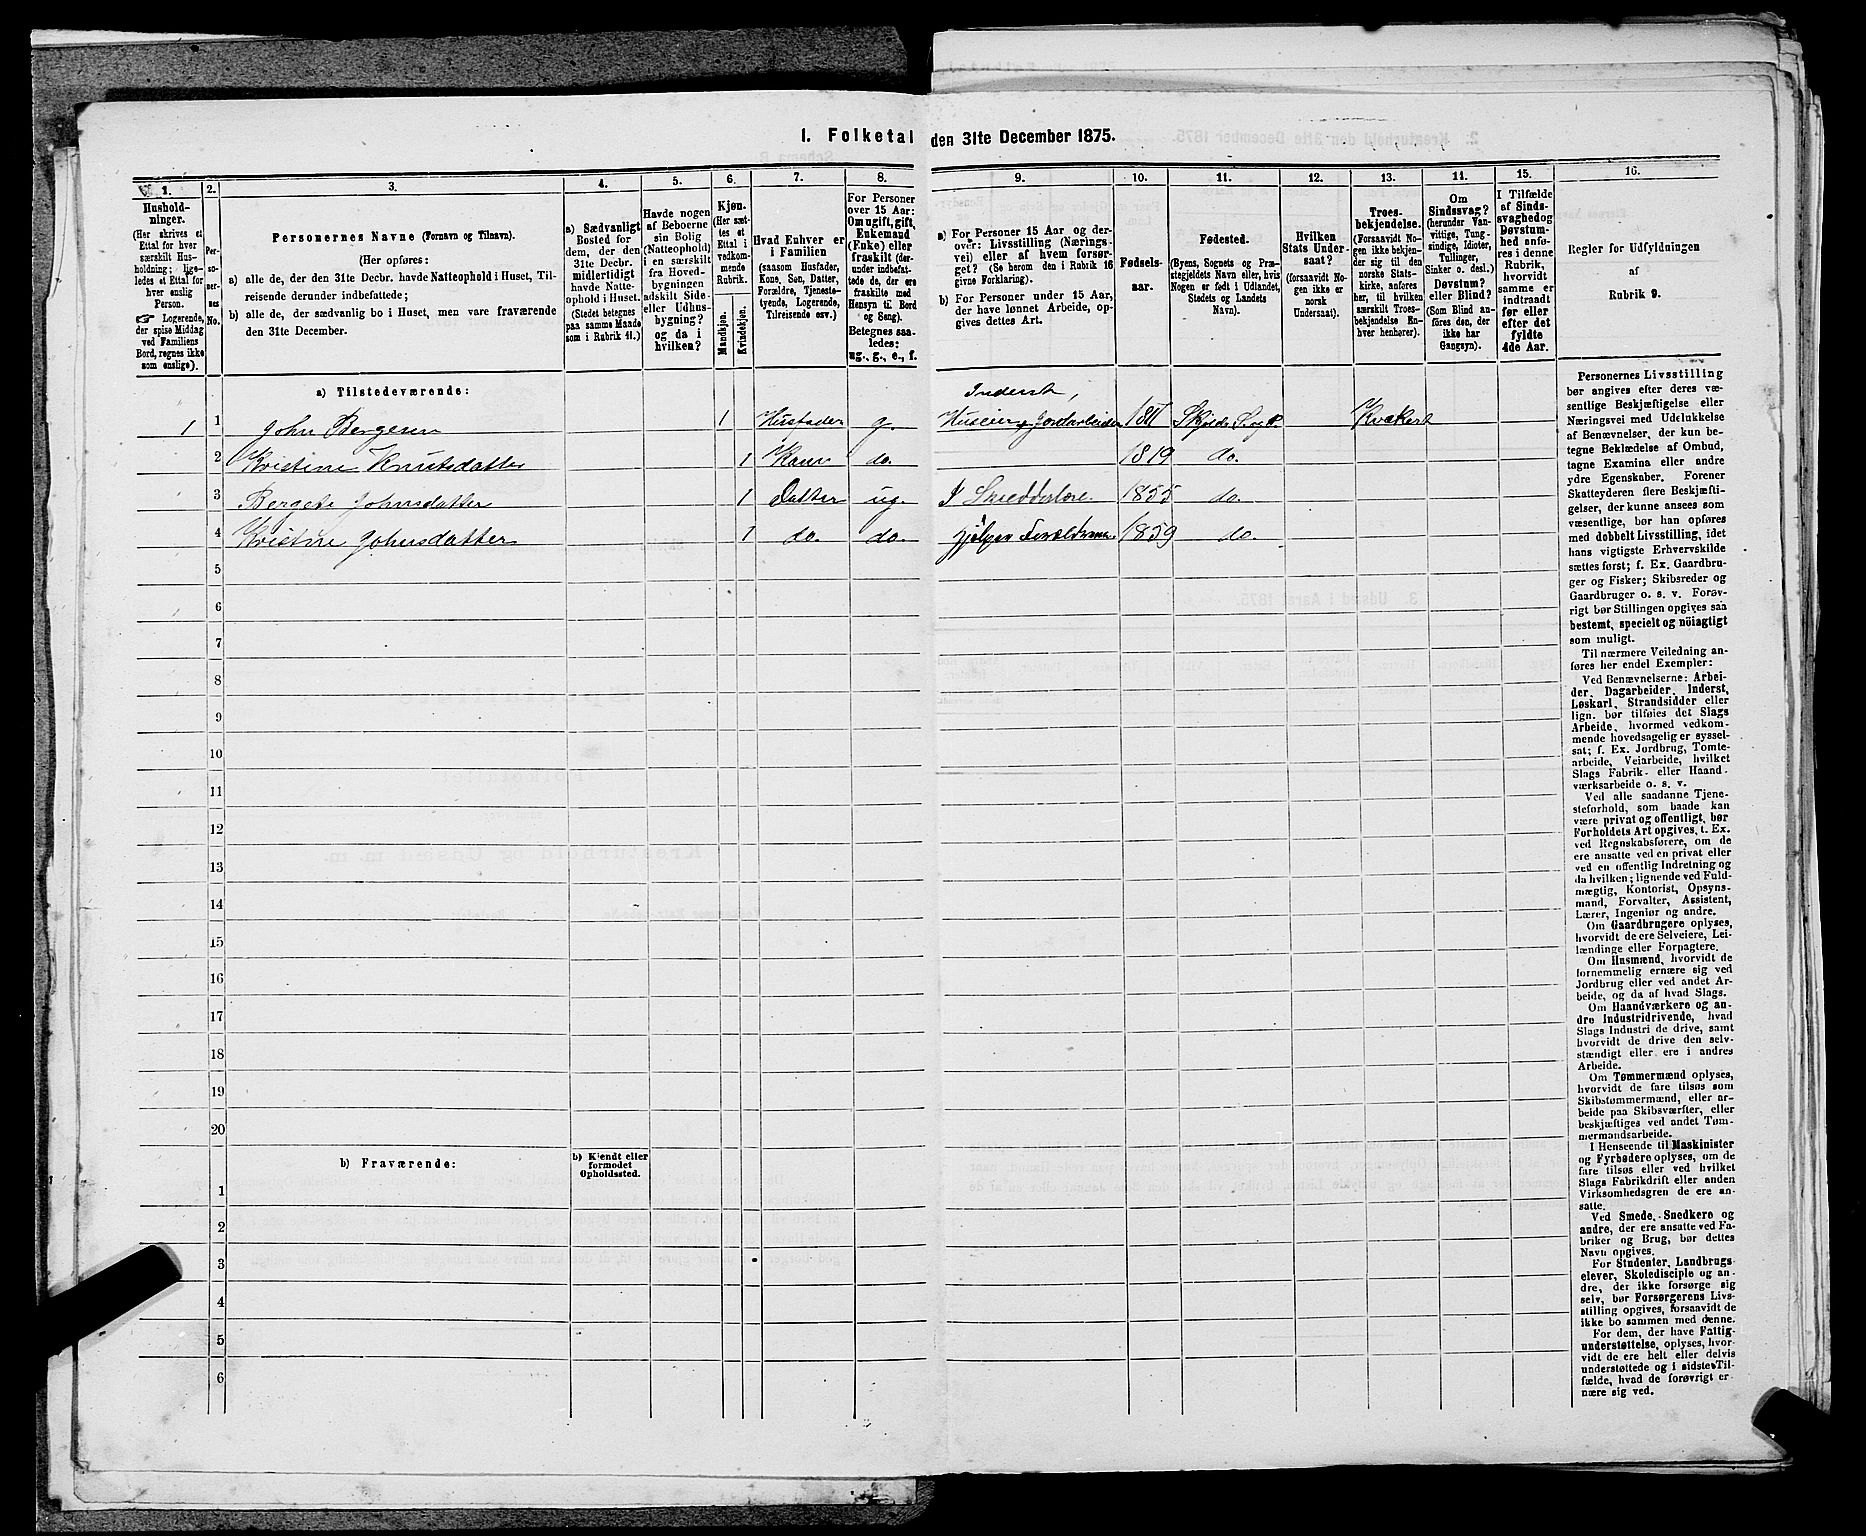 1. Folketal den 31te December 1875.
1.
2.
3.
4.
5.
6.
7.
8.
9.
10.
11.
12.
13.
14.
15.
16.
Hushold-
ninger.
(Her skrives et
Ettal for hver
særskilt Hus-
holdning; lige-
ledes et Ettal for
hver enslig
Person.
☞ Logerende,
der spise Middag
ved Familiens
Bord, regnes ikke
som enslige).
Per-
so-
ner-
nes
No.
Personernes Navne (Fornavn og Tilnavn).
(Her opføres:
a) alle de, der den 31te Decbr. havde Natteophold i Huset, Til-
reisende derunder indbefattede;
b) alle de, der sædvanlig bo i Huset, men vare fraværende
den 31te December.
a) Sædvanligt
Bosted for
dem, der den
31te Decbr.
midlertidigt
havde Natte-
ophold i Huset.
(Stedet betegnes
paa samme Maade
som i Rubrik 11.)
Havde nogen
af Beboerne
sin Bolig
(Natteophold)
i en særskilt
fra Hoved-
bygningen
adskilt Side-
eller Udhus-
bygning?
og da i
hvilken?
Kjøn.
(Her sæt-
tes et
Ettal i
vedkom-
mende
Rubrik.
Mandkjøn.
Kvindekjøn.
Hvad Enhver er
i Familien
(saasom Husfader,
Kone, Søn, Datter,
Forældre, Tjeneste-
tyende, Logerende,
Tilreisende osv.)
For Personer
over 15 Aar:
Om ugift, gift,
Enkemand
(Enke) eller
fraskilt (der-
under indbefat-
tede de, der ere
fraskilte med
Hensyn til Bord
og Seng).
Betegnes saa-
ledes:
ug., g., e., f.
a) For Personer 15 Aar og der-
over: Livsstilling (Nærings-
vei) eller af hvem forsør-
get? (Se herom den i Rubrik 16
givne Forklaring).
b) For Personer under 15 Aar,
der have lønnet Arbeide, op-
gives dettes Art.
Fødsels-
aar.
Fødested.
(Byens, Sognets og Præ-
stegjeldets Navn eller, hvis
Nogen er født i Udlandet,
Stedets og Landets
Navn).
Hvilken
Stats Under-
saat?
(forsaavidt No-
gen ikke er
norsk
Undersaat).
Troes-
bekjendelse.
(Forsaavidt No-
gen ikke bekjen-
der sig til den
norske Stats-
kirke, anføres
her, til hvilken
særskilt Troes-
bekjendelse En-
hver henhører).
Om
Sindssvag?
(herunder Van-
vittige, Tung-
sindige, Idioter,
Tullinger,
Sinker o. desl.)
Døvstum?
eller Blind?
(Som Blind an-
føres den, der
ikke har
Gangsyn).
I Tilfælde
af Sinds-
svaghed og
Døvstum-
hed anfø-
res i denne
Rubrik,
hvorvidt
samme er
indtraadt
før eller
efter det
fyldte
4de Aar.
Regler for Udfyldningen
af
Rubrik 9.
a) Tilstedeværende:
Inderst,
1 1 John Bergesen 1 Husfader g. Huseier Jordarbeider Skjolds Kvæker
2 Kristine Knutsdatter 1 Kone do. 1819 do.
3 Bergete Johnsdatter 1 Datter ug. I 1855 do.
4 Kristine Johnsdatter 1 do. do. hjelper Forældrene 1859 do.
5
6
7
8
9
10
11
12
13
14
15
16
17
18
19
20
b) Fraværende:
b) Kjendt eller
formodet
Opholdssted.
1
2
3
4
5
6
Personernes Livsstilling
bør angives efter deres væ-
sentlige Beskjæftigelse eller
Næringsvei med Udelukkelse
af Benævnelser, der kun be-
tegne Beklædelse af Ombud,
tagne Examina eller andre
ydre Egenskaber. Forener
Skatteyderen flere Beskjæfti-
gelser, der kunne ansees som
væsentlige, bør han opføres
med dobbelt Livsstilling, idet
hans vigtigste Erhvervskilde
sættes først; f. Ex. Gaardbru-
ger og Fisker; Skibsreder og
Gaardbruger o. s. v. Forøv-
rigt bør Stillingen opgives saa
bestemt, specielt og nöiagtigt
som muligt.
Til nærmere Veiledning an-
føres her endel Exempler:
Ved Benævnelserne: Arbei-
der, Dagarbeider, Inderst,
Løskarl, Strandsidder eller
lign. bør tilføies det Slags
Arbeide, hvormed vedkom-
mende hovedsagelig er syssel-
sat; f. Ex. Jordbrug, Tomte-
arbeide, Veiarbeide, hvilket
Slags Fabrik- eller Haand-
værksarbeide o. s. v.
Ved alle saadanne Tjene-
steforhold, som baade kan
være privat og offentligt, bør
Forholdets Art opgives, t. Ex.
ved Regnskabsførere, om de
ere ansatte ved en privat eller
ved en offentlig Indretning og
da hvilken; lignende ved Fuld-
mægtig, Kontorist, Opsyns-
mand, Forvalter, Assistent,
Lærer, Ingeniør og andre.
Om Gaardbrugere oplyses,
hvorvidt de ere Selveiere, Lei-
lændinge eller Forpagtere.
Om Husmænd, hvorvidt de
fornemmelig ernære sig ved
Jordbrug eller ved andet Ar-
beide, og da af hvad Slags.
Om Haandværkere og an-
dre Industridrivende, hvad
Slags Industri de drive, samt
hvorvidt de drive den selv-
stændigt eller ere i andres
Arbeide.
Om Tømmermænd oplyses,
hvorvidt de fare tilsøs som
Skibstømmermænd, eller ar-
beide paa Skibsværfter, eller
beskjæftiges ved andet Tøm-
mermandsarbeide.
I Henseende til Maskinister
og Fyrbødere oplyses, om de
fare tilsøs eller ved hvilket
Slags Fabrikdrift eller anden
Virksomhedsgren de ere an-
satte.
Ved Smede, Snedkere og
andre, der ere ansatte ved Fa-
briker og Brug, bør dettes
Navn opgives.
For Studenter, Landbrugs-
elever, Skoledisciple og an-
dre, der ikke forsørge sig
selv, bør Forsørgerens Livs-
stilling opgives, forsaavidt de
ikke bo sammen med denne.
For dem, der have Fattig-
understøttelse, oplyses, hvor-
vidt de ere helt eller delvis
understøttede og i sidste Til-
fælde, hvad de forøvrigt er-
nære sig ved.